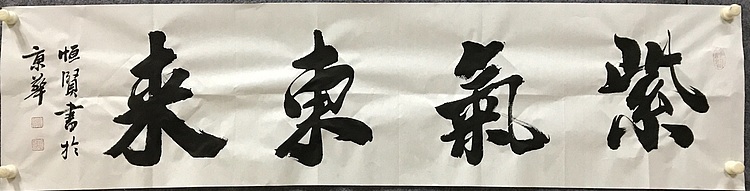 紫氣東来
恒賢書於
京華